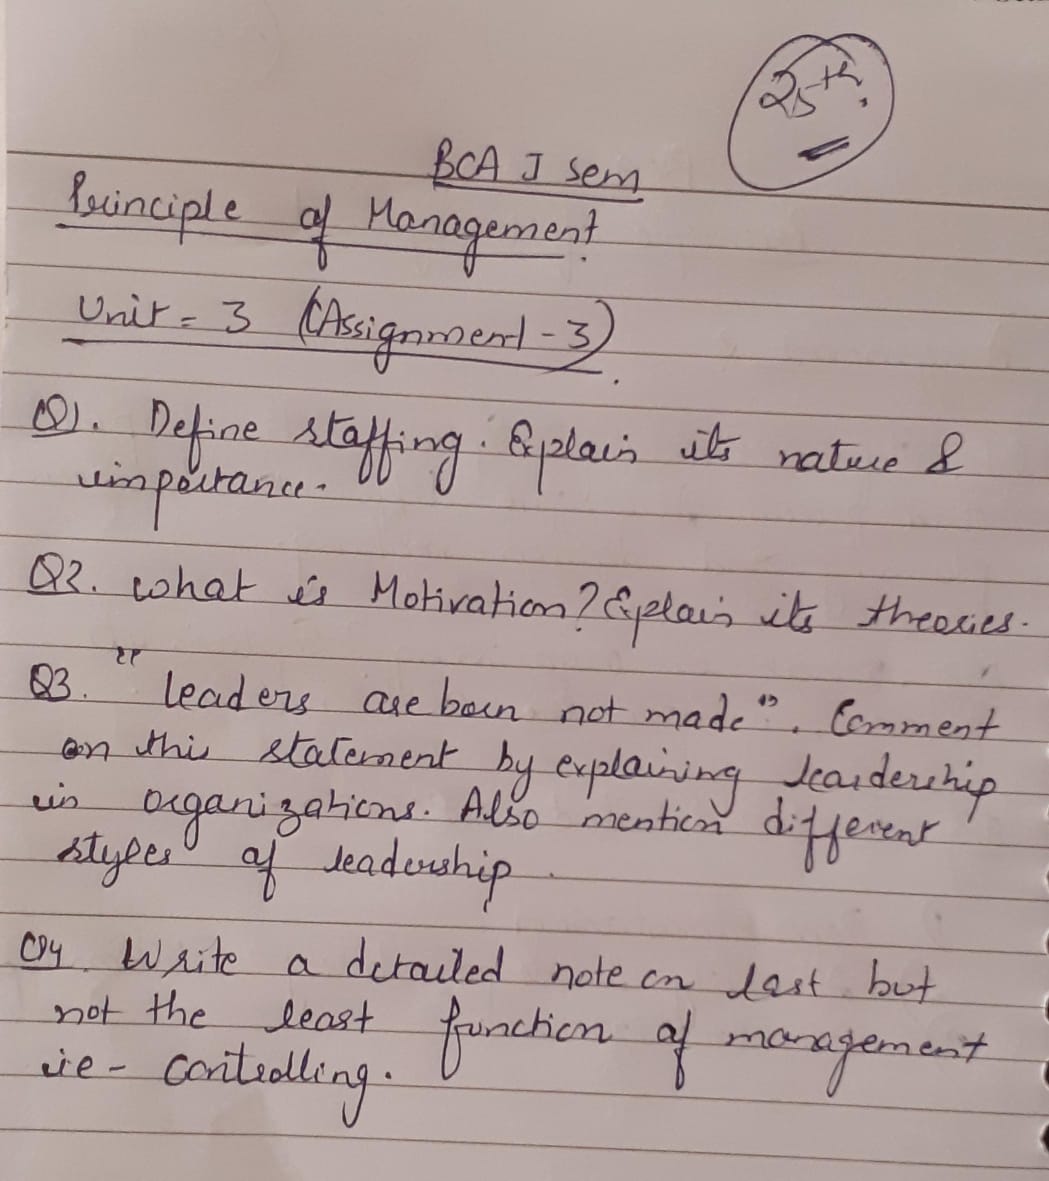 25th.
BCA I sem
Principle of Management.
Unit = 3 (Assignment - 3).
Q1. Define staffing. Explain its nature &
importance.
Q2. What is Motivation? Explain its theories.
Q3. "leaders are born not made". Comment
on this statement by explaining leadership
in organizations. Also mention different
styles of leadership.
Q4. Write a detailed note on last but
not the least function of management
ie - controlling.